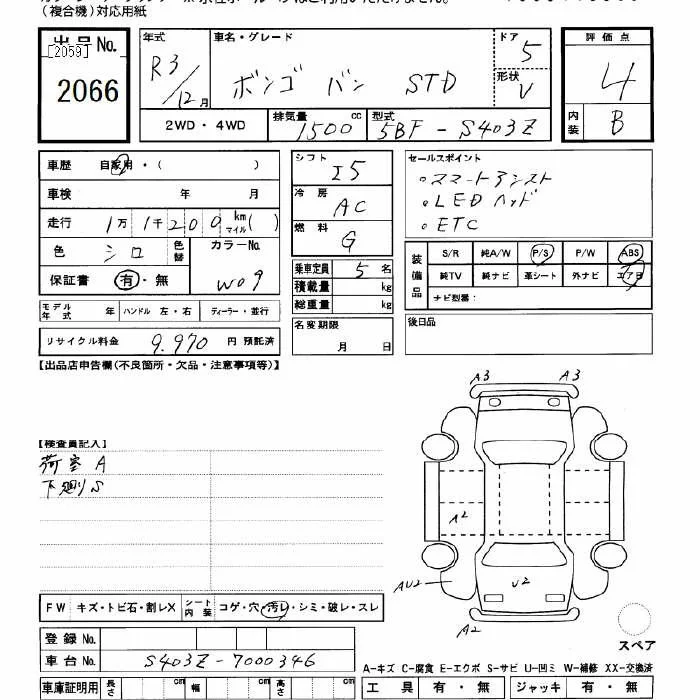 (複合機)対応用紙
出品No.
[2059]
2066
年式
R3/12月
車名・グレード
ボンゴ バン STD
ドア
5
形状
V
評価点
4
内装
B
2WD・4WD
排気量
1500 cc
型式
5BF-S403Z
車歴 自家用・( )
車検 年 月
走行 1万1千200 km マイル( )
色 シロ 色替
カラーNo.
W09
保証書 有・無
モデル年式 年 ハンドル 左・右 ディーラー・並行
リサイクル料金 9,970 円 預託済
シフト
I5
冷房
AC
燃料
G
乗車定員 5 名
積載量 kg
総重量 kg
名変期限
月 日
セールスポイント
。スマートアシスト
。LEDヘッド
。ETC
装備品
S/R 純A/W P/S P/W ABS
純TV 純ナビ 革シート 外ナビ エアB
ナビ型番:
後日品
【出品店申告欄(不良箇所・欠品・注意事項等)】
【検査員記入】
荷室A
下廻りS
A3
A3
A2
AU2
U2
A2
スペア
FW キズ・トビ石・割レX シート内装 コゲ・穴・汚レ・シミ・破レ・スレ
登録No.
車台No. S403Z-7000346
A-キズ C-腐食 E-エクボ S-サビ U-凹ミ W-補修 XX-交換済
車庫証明用 長さ cm 幅 cm 高さ cm
工具 有・無 ジャッキ 有・無